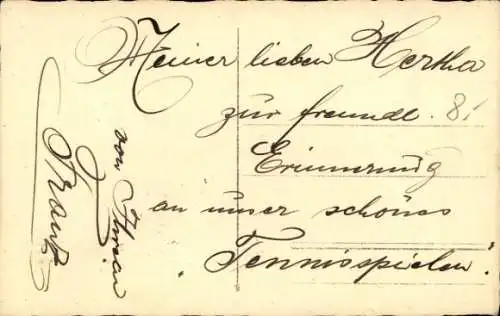 Meiner lieben Hertha
zur freundl. 8!
Erinnerung
an unser schönes
Tennisspielen!
von Ihrer